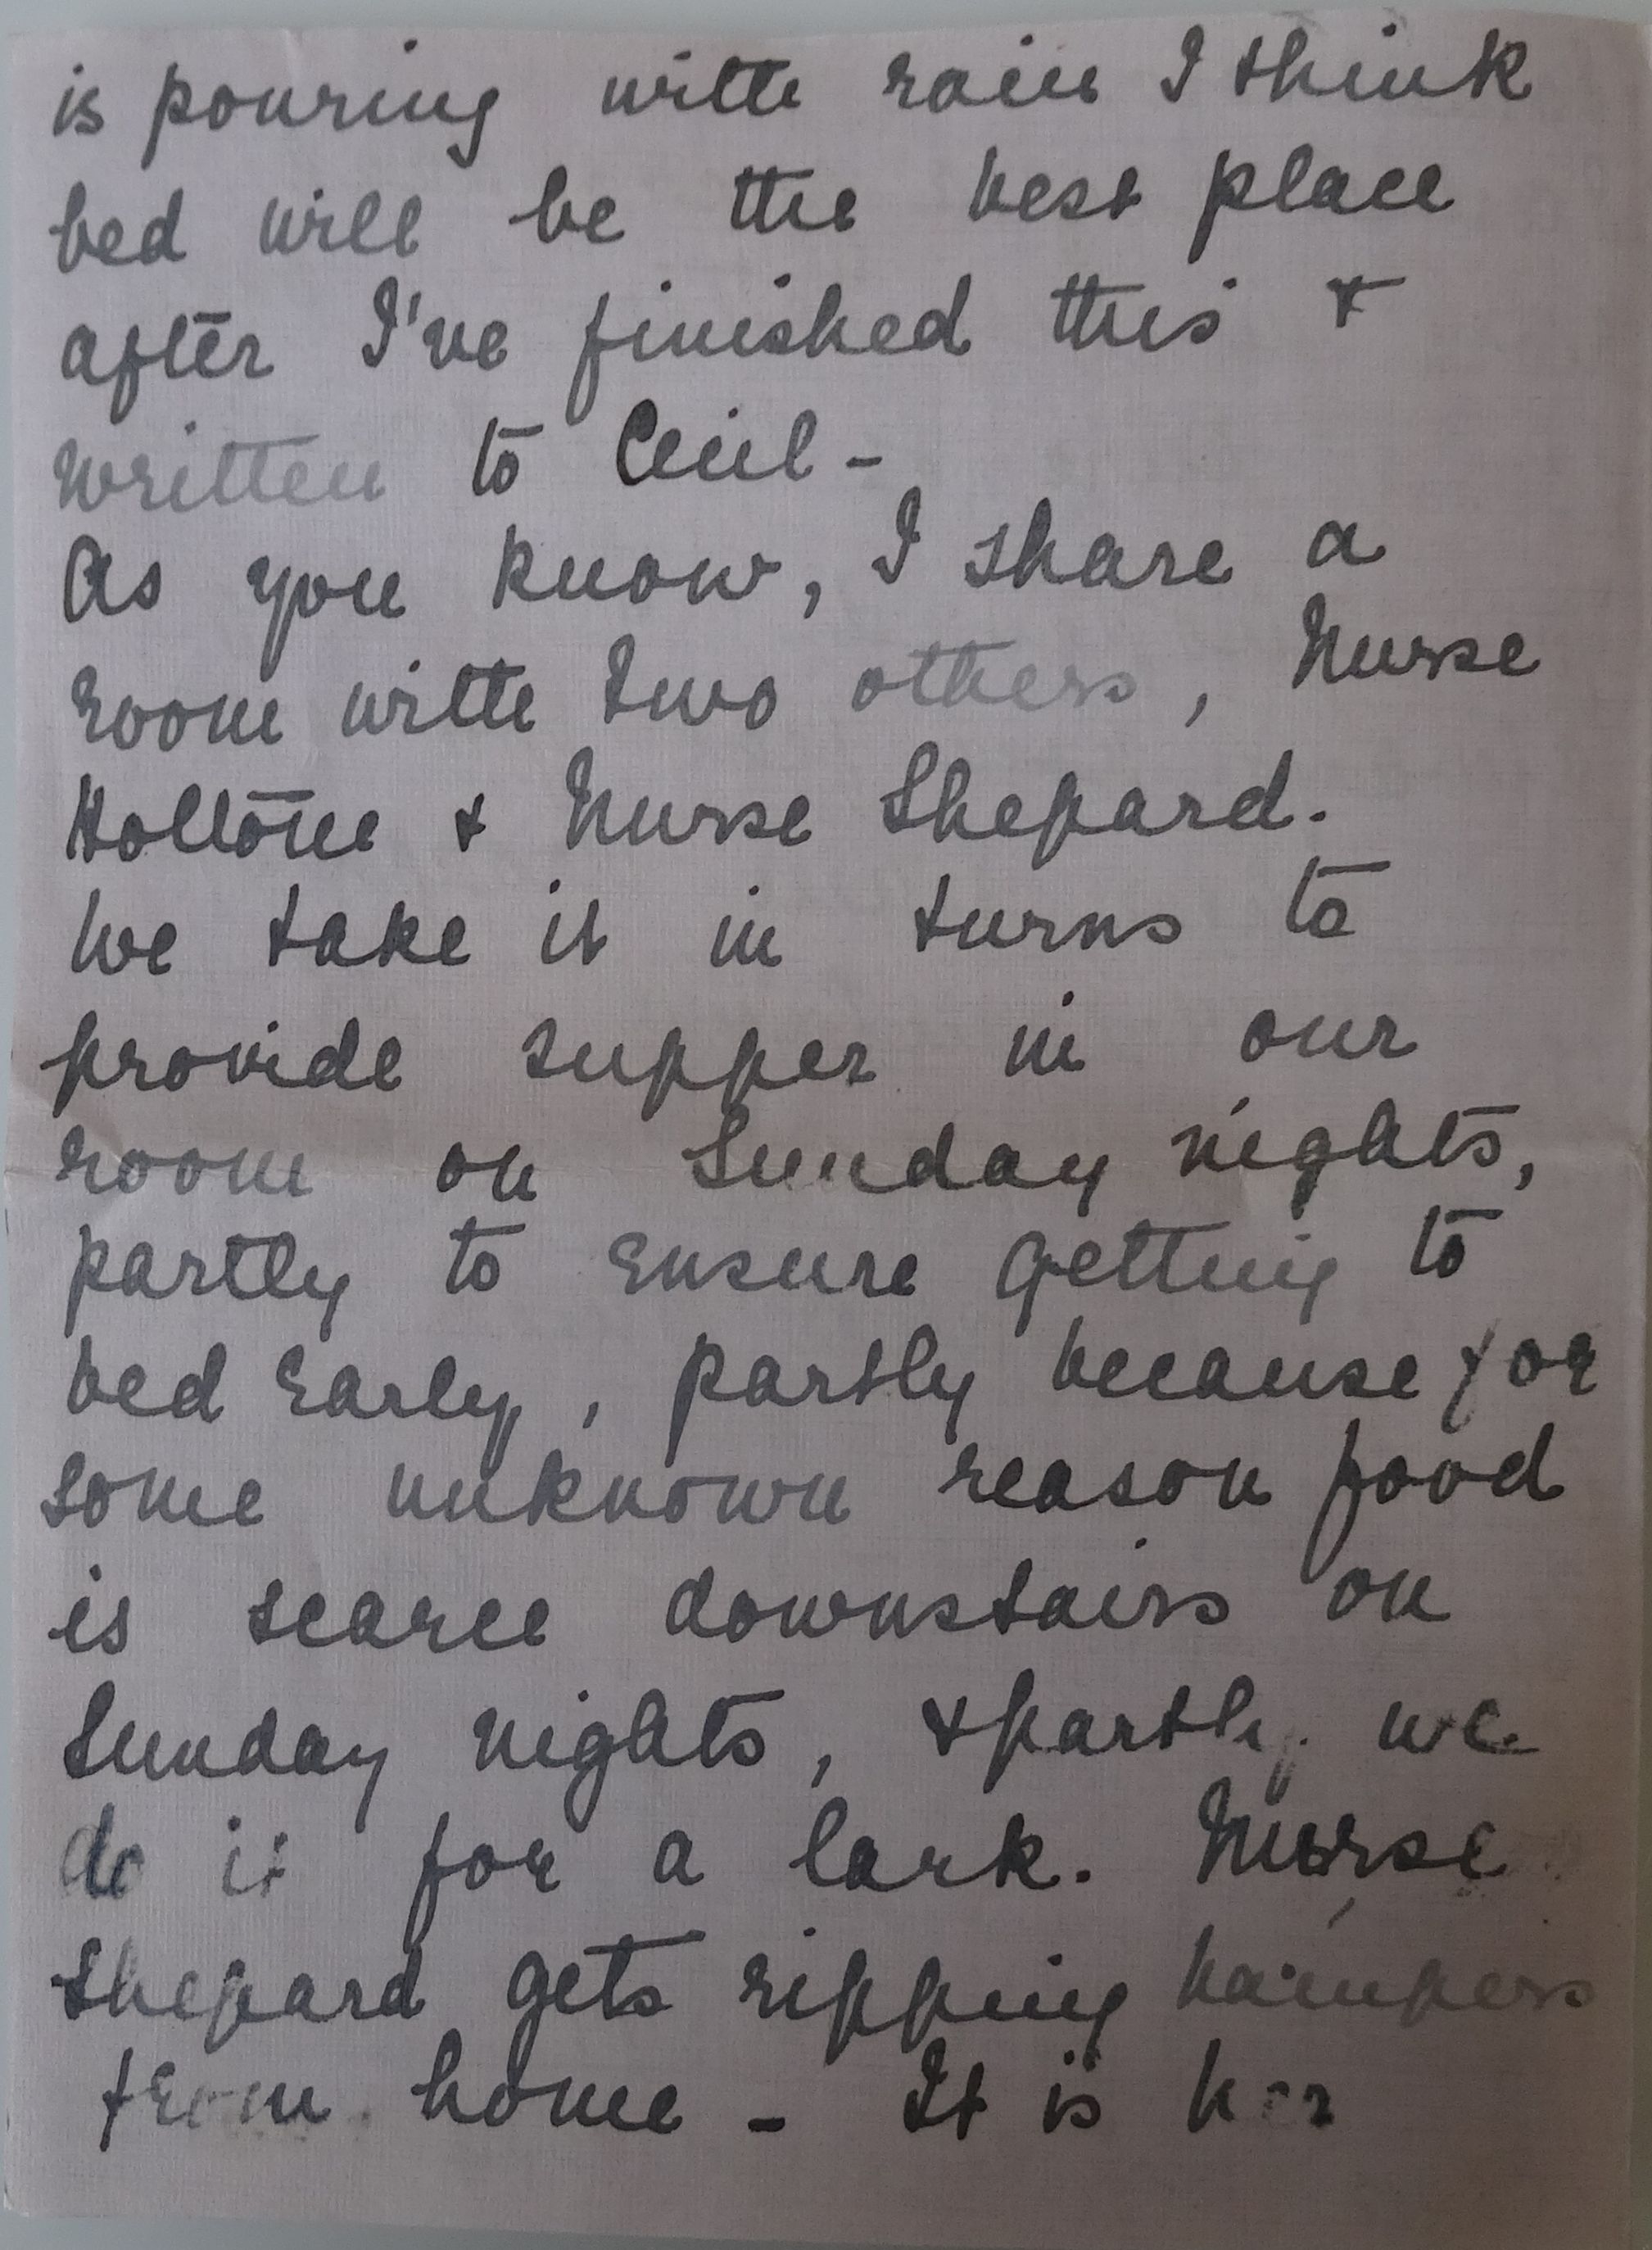 is pouring with rain I think
bed will be the best place
after I've finished this &
written to Cecil -
As you know, I share a
room with two others, Nurse
Holtom & Nurse Shepard.
We take it in turns to
provide supper in our
room on Sunday nights,
partly to ensure getting to
bed early, partly because for
some unknown reason food
is scarce downstairs on
Sunday nights, & partly we
do it for a lark. Nurse
Shepard gets ripping hampers
from home - It is her